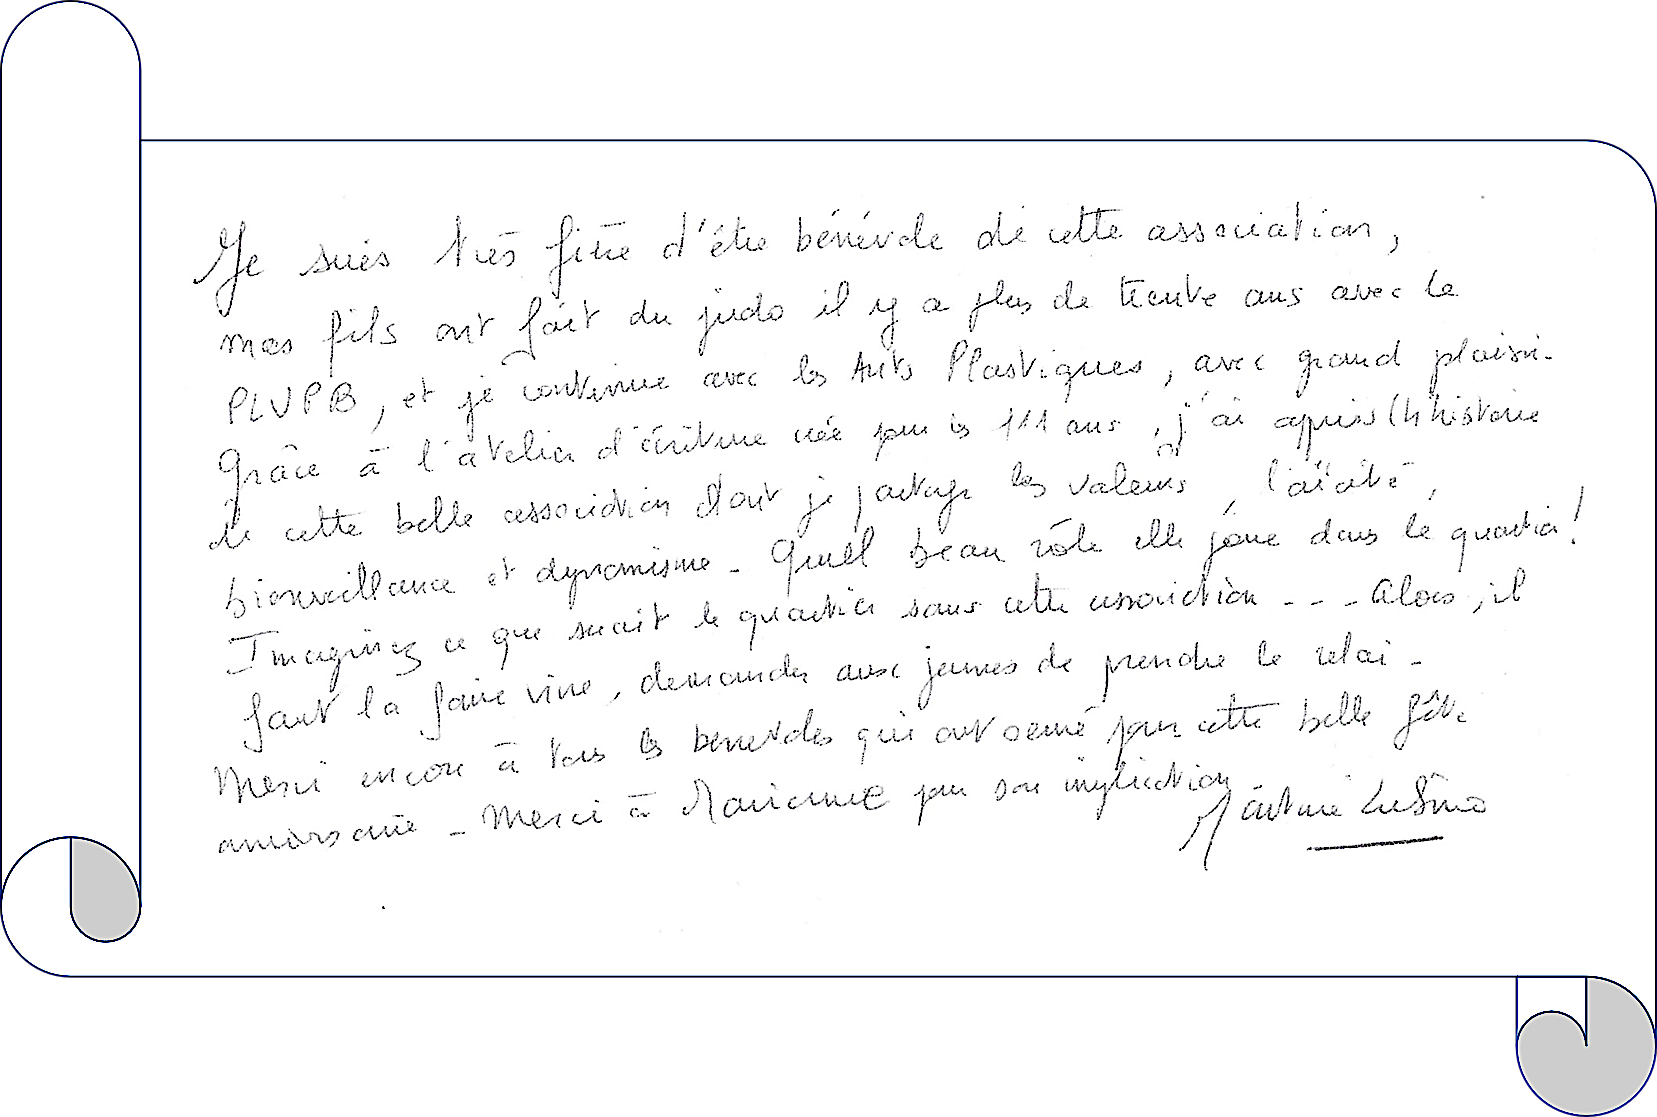 Je suis très fière d'être bénévole de cette association,
mes fils ont fait du judo il y a plus de trente ans avec le
PLVPB, et je continue avec les Arts Plastiques, avec grand plaisir.
Grâce à l'atelier d'écriture créé pour les 111 ans, j'ai appris l'histoire
de cette belle association dont je partage les valeurs, laïcité,
bienveillance et dynamisme - Quel beau rôle elle joue dans le quartier!
Imaginez ce que serait le quartier sans cette association - - - Alors, il
faut la faire vivre, demander aux jeunes de prendre le relai -
Merci encore à tous les bénévoles qui ont oeuvré pour cette belle fête
anniversaire - Merci à Marianne pour son implication